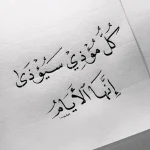 كُلُّ مُؤْذِي سَيُؤْذَى
إِنَّهَا الأَيَّامُ